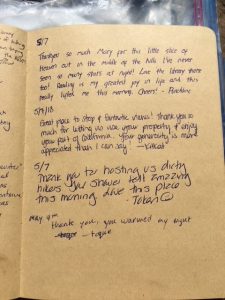 5/7
Thank you so much Mary for this little slice of
Heaven out in the middle of the hills. I've never
seen so many stars at night! Love the library there
too! Reading is my greatest joy in life and this
really lifted me this morning. Cheers! -
5/7/18
Great place to stop & fantastic views! Thank you so
much for letting us use your property & enjoy
your part of California. Your generosity is more
appreciated than I can say —
5/7
Thank you for hosting us dirty
hikers. You shower felt amazing
this morning. Love this place
- Token
May 9th
thank you, you warmed my night